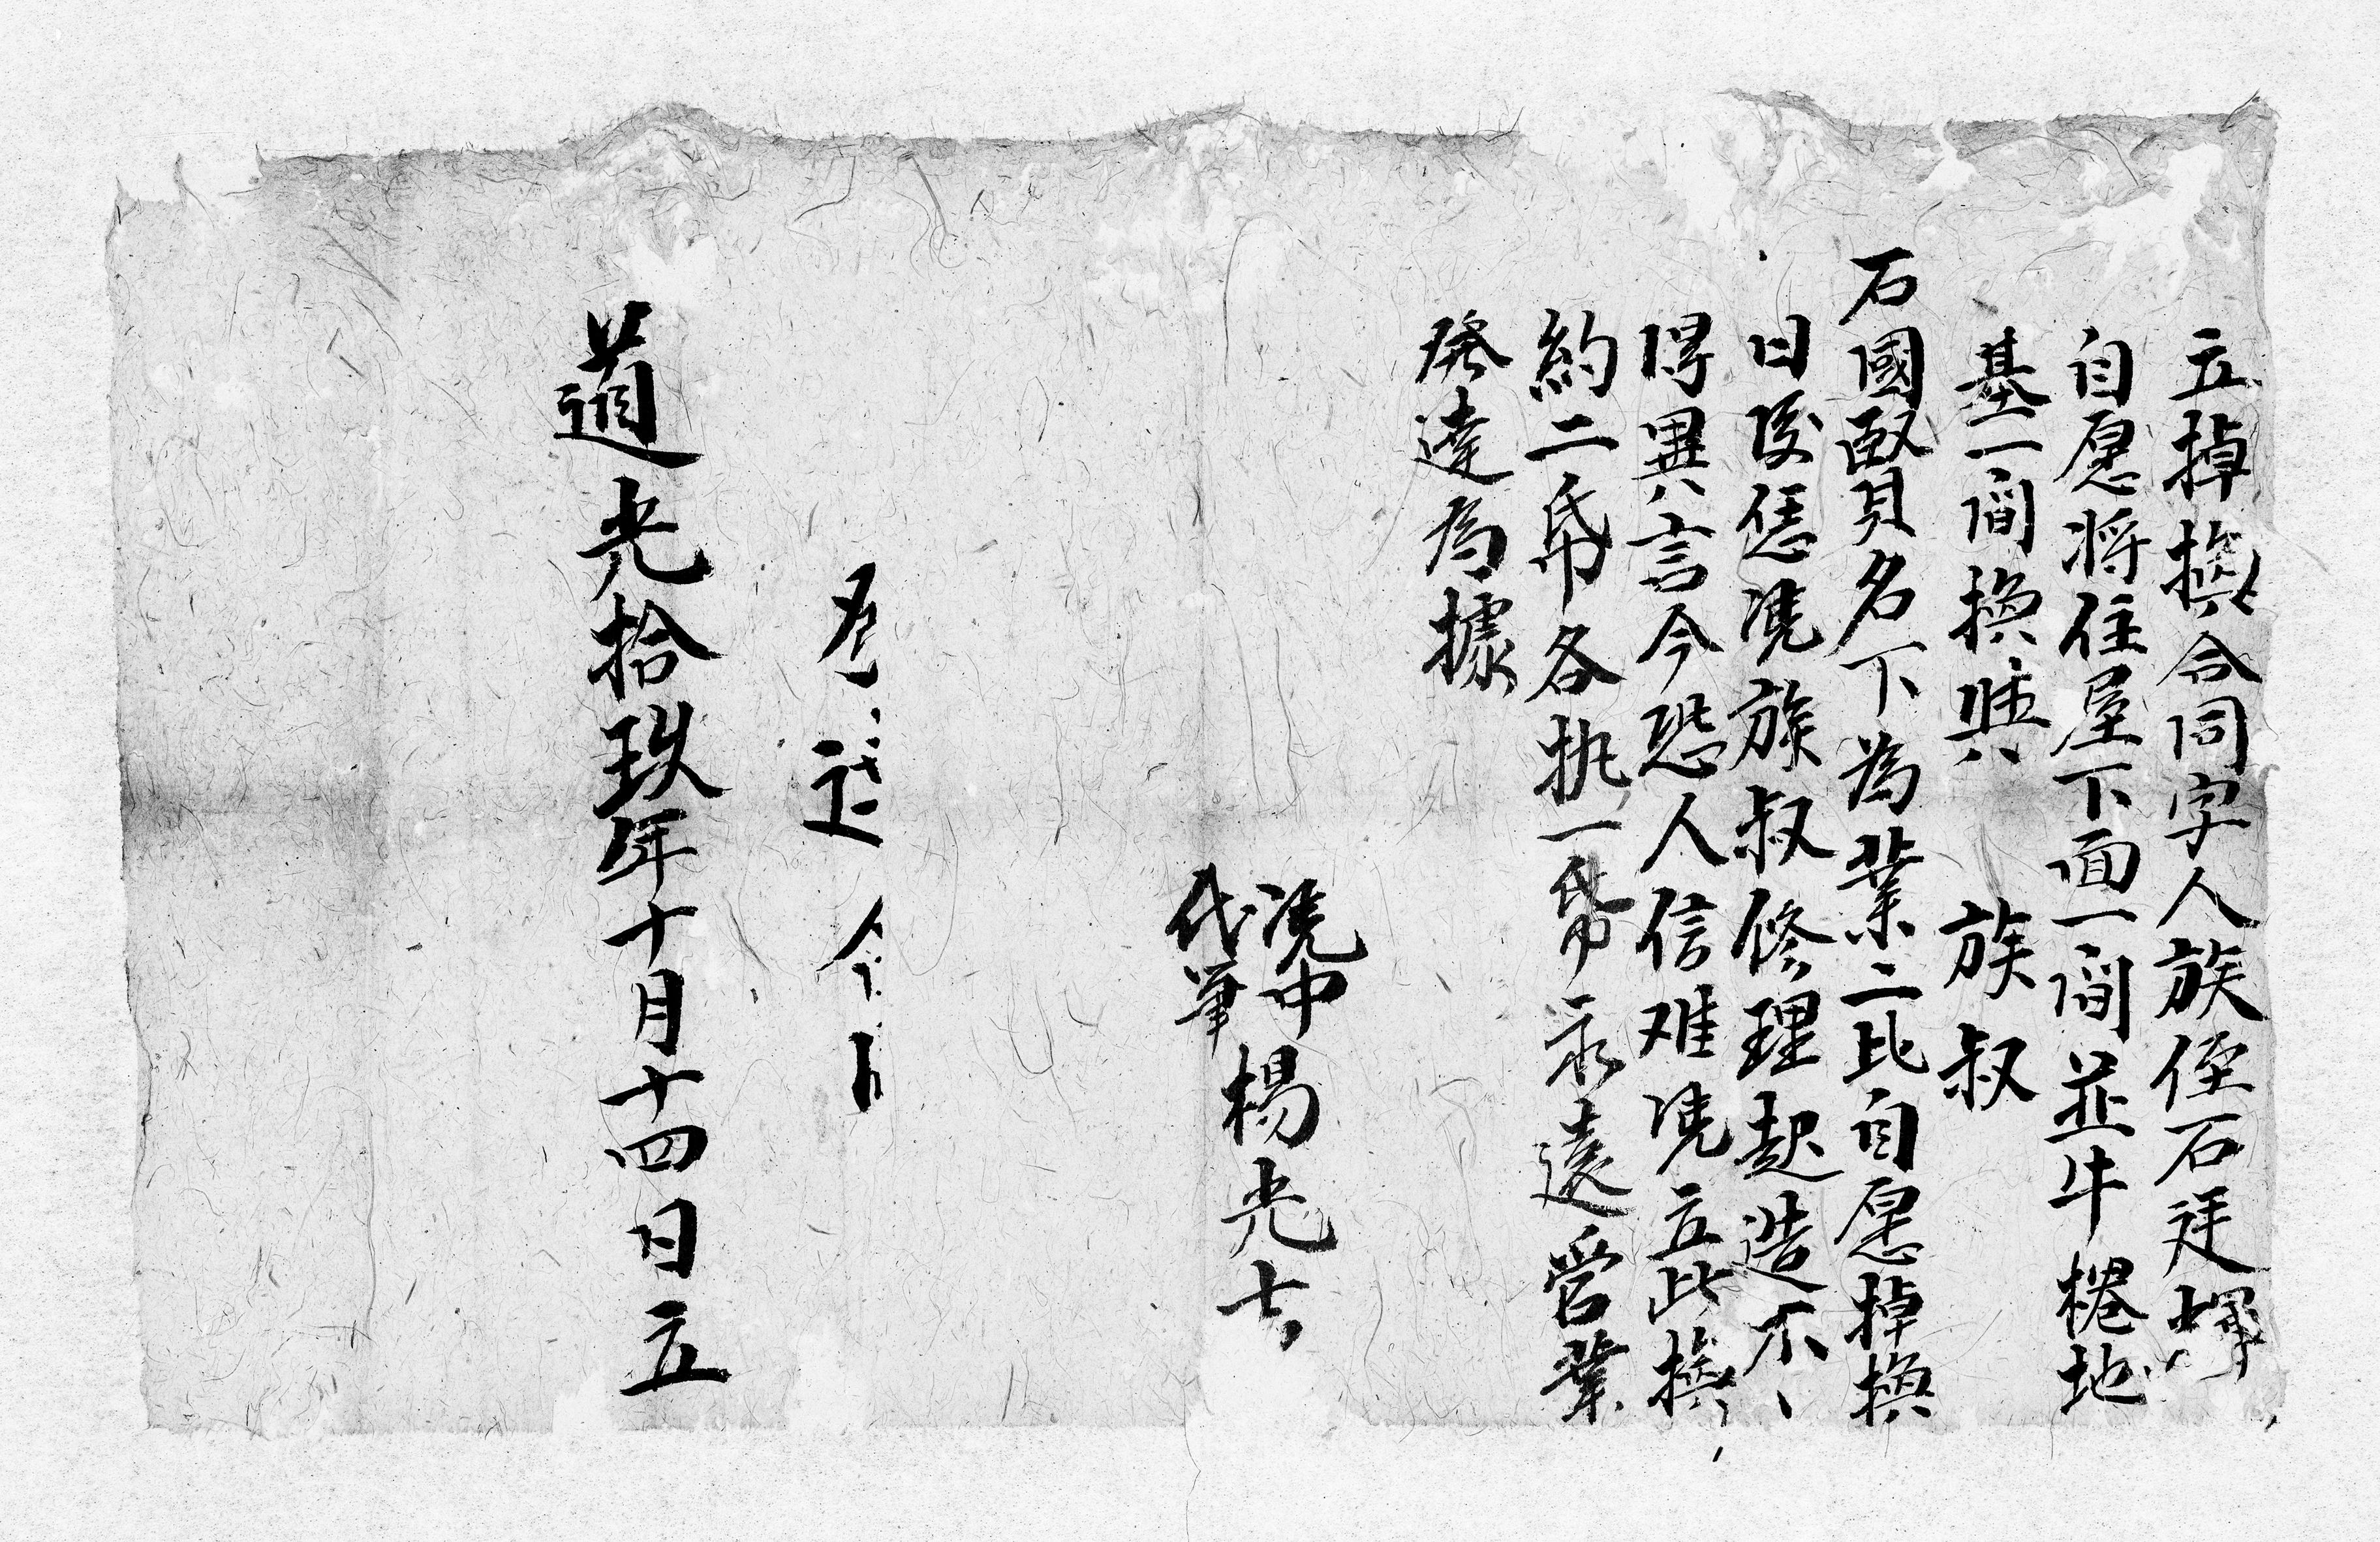 立掉換合同字人族侄石廷輝
自愿將住屋下面一間並牛棬地
基一間換與 族叔
石國賢名下為業二比自愿掉換
日後恁凴族叔修理起造不
得異言今恐人信难凴立此換
約二帋各执一帋永遠管業
發達為據
凴中
代筆
楊光士
道光拾玖年十月十四日立